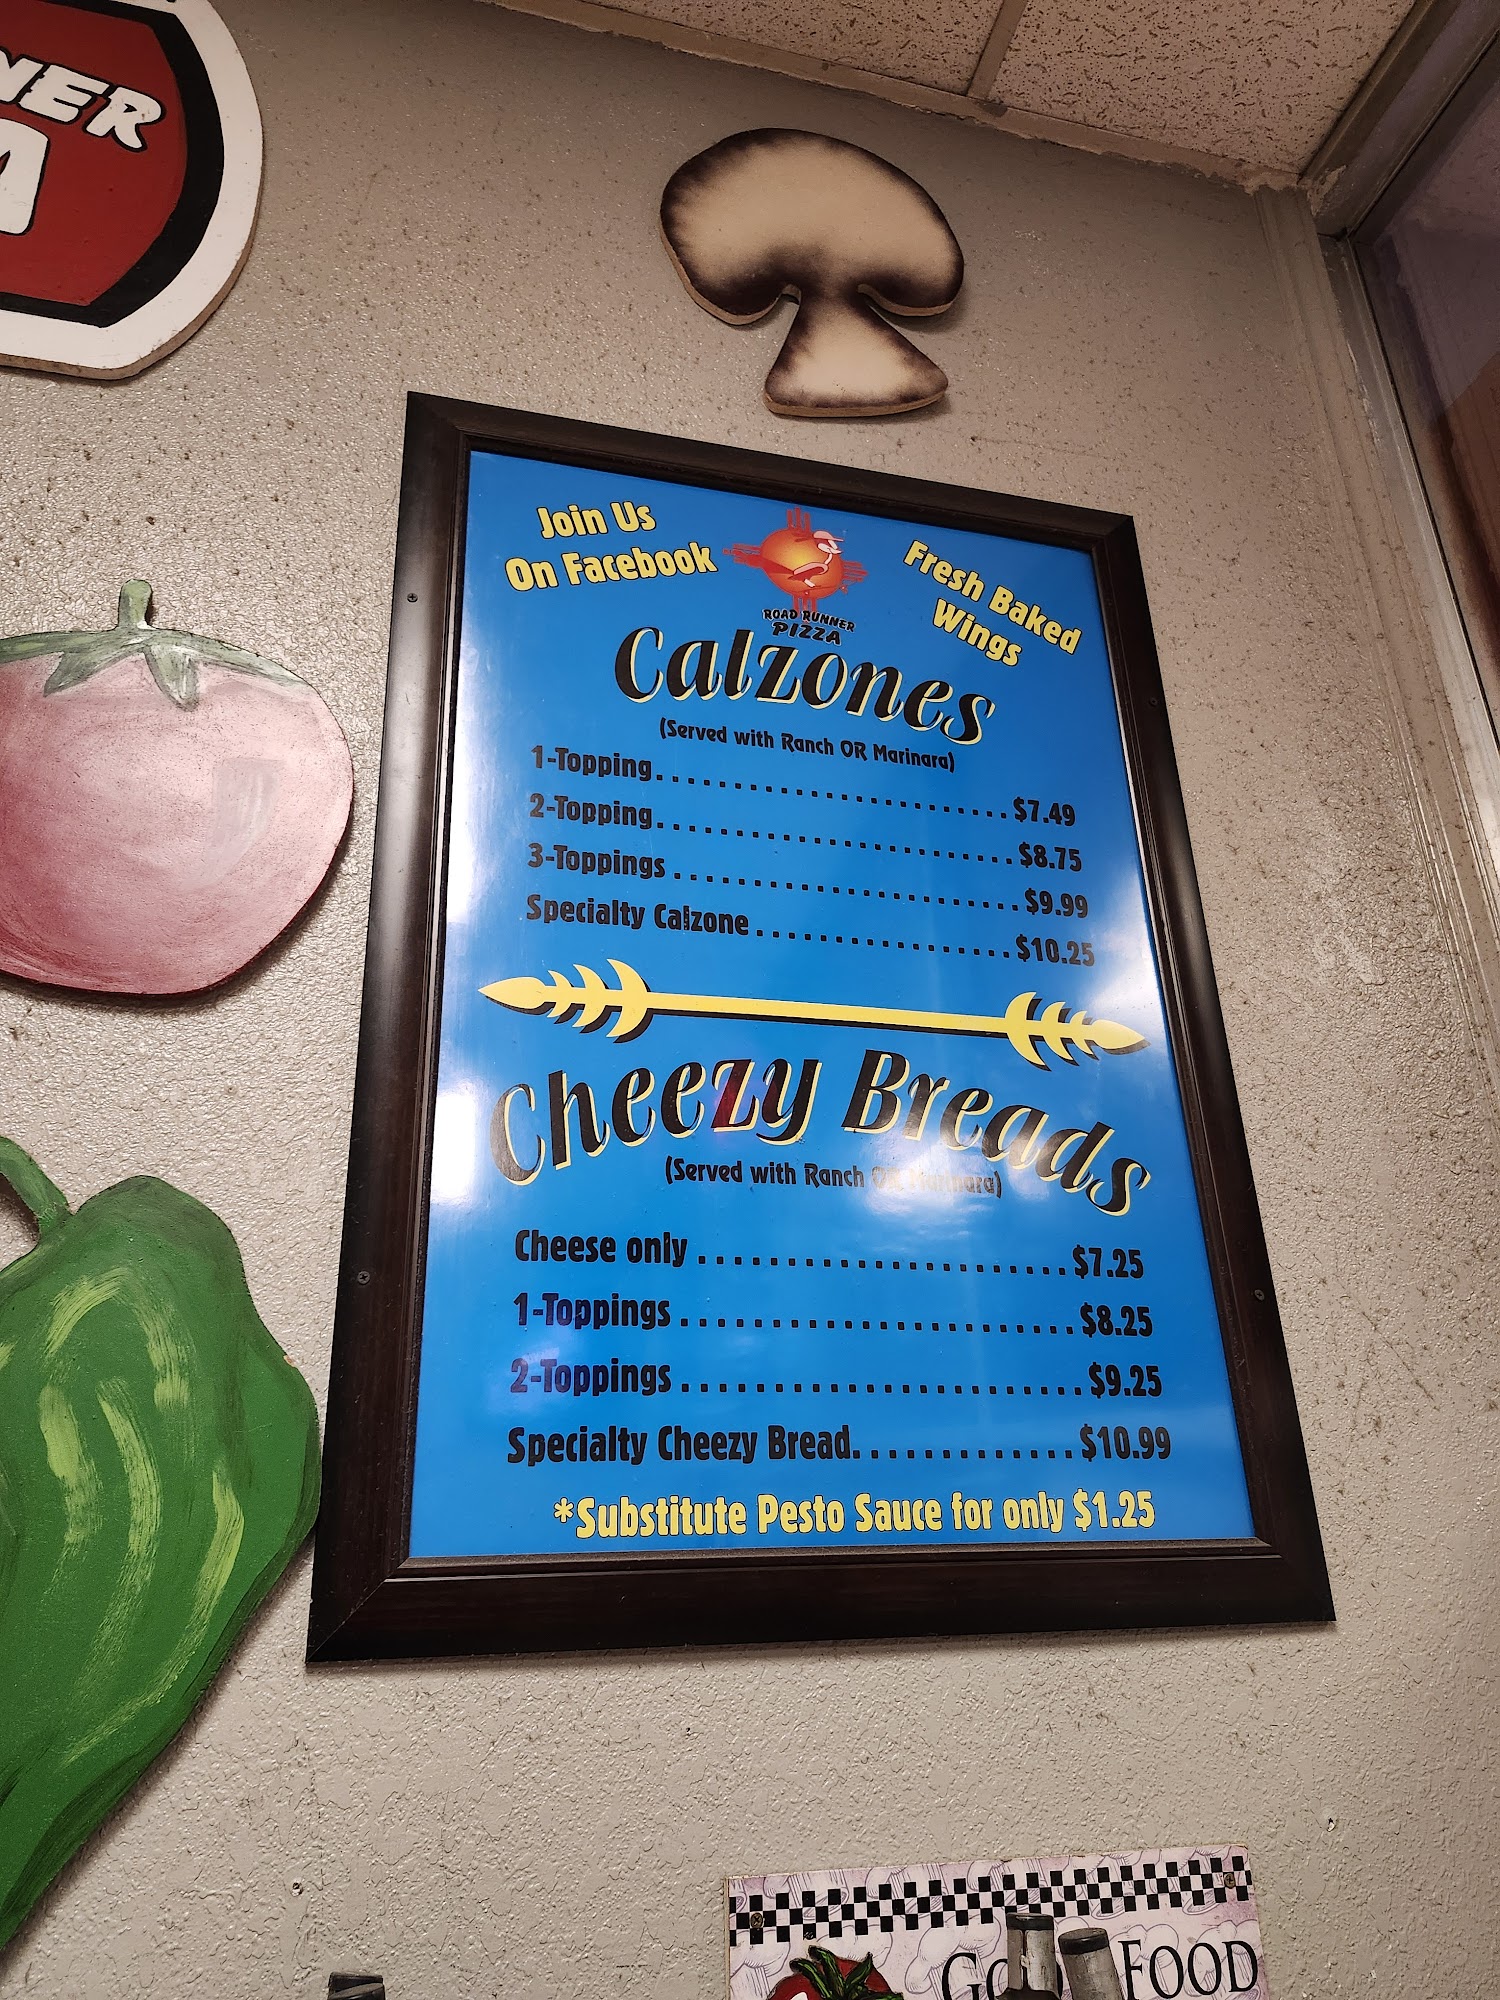 NER
A
Join Us
On Facebook
ROAD RUNNER
PIZZA
Fresh Baked
Wings
Calzones
(Served with Ranch OR Marinara)
1-Topping........................$7.49
2-Topping........................$8.75
3-Toppings.......................$9.99
Specialty Calzone.................$10.25
Cheezy Breads
(Served with Ranch OR Marinara)
Cheese only........................$7.25
1-Toppings.........................$8.25
2-Toppings.........................$9.25
Specialty Cheezy Bread.............$10.99
*Substitute Pesto Sauce for only $1.25
FOOD